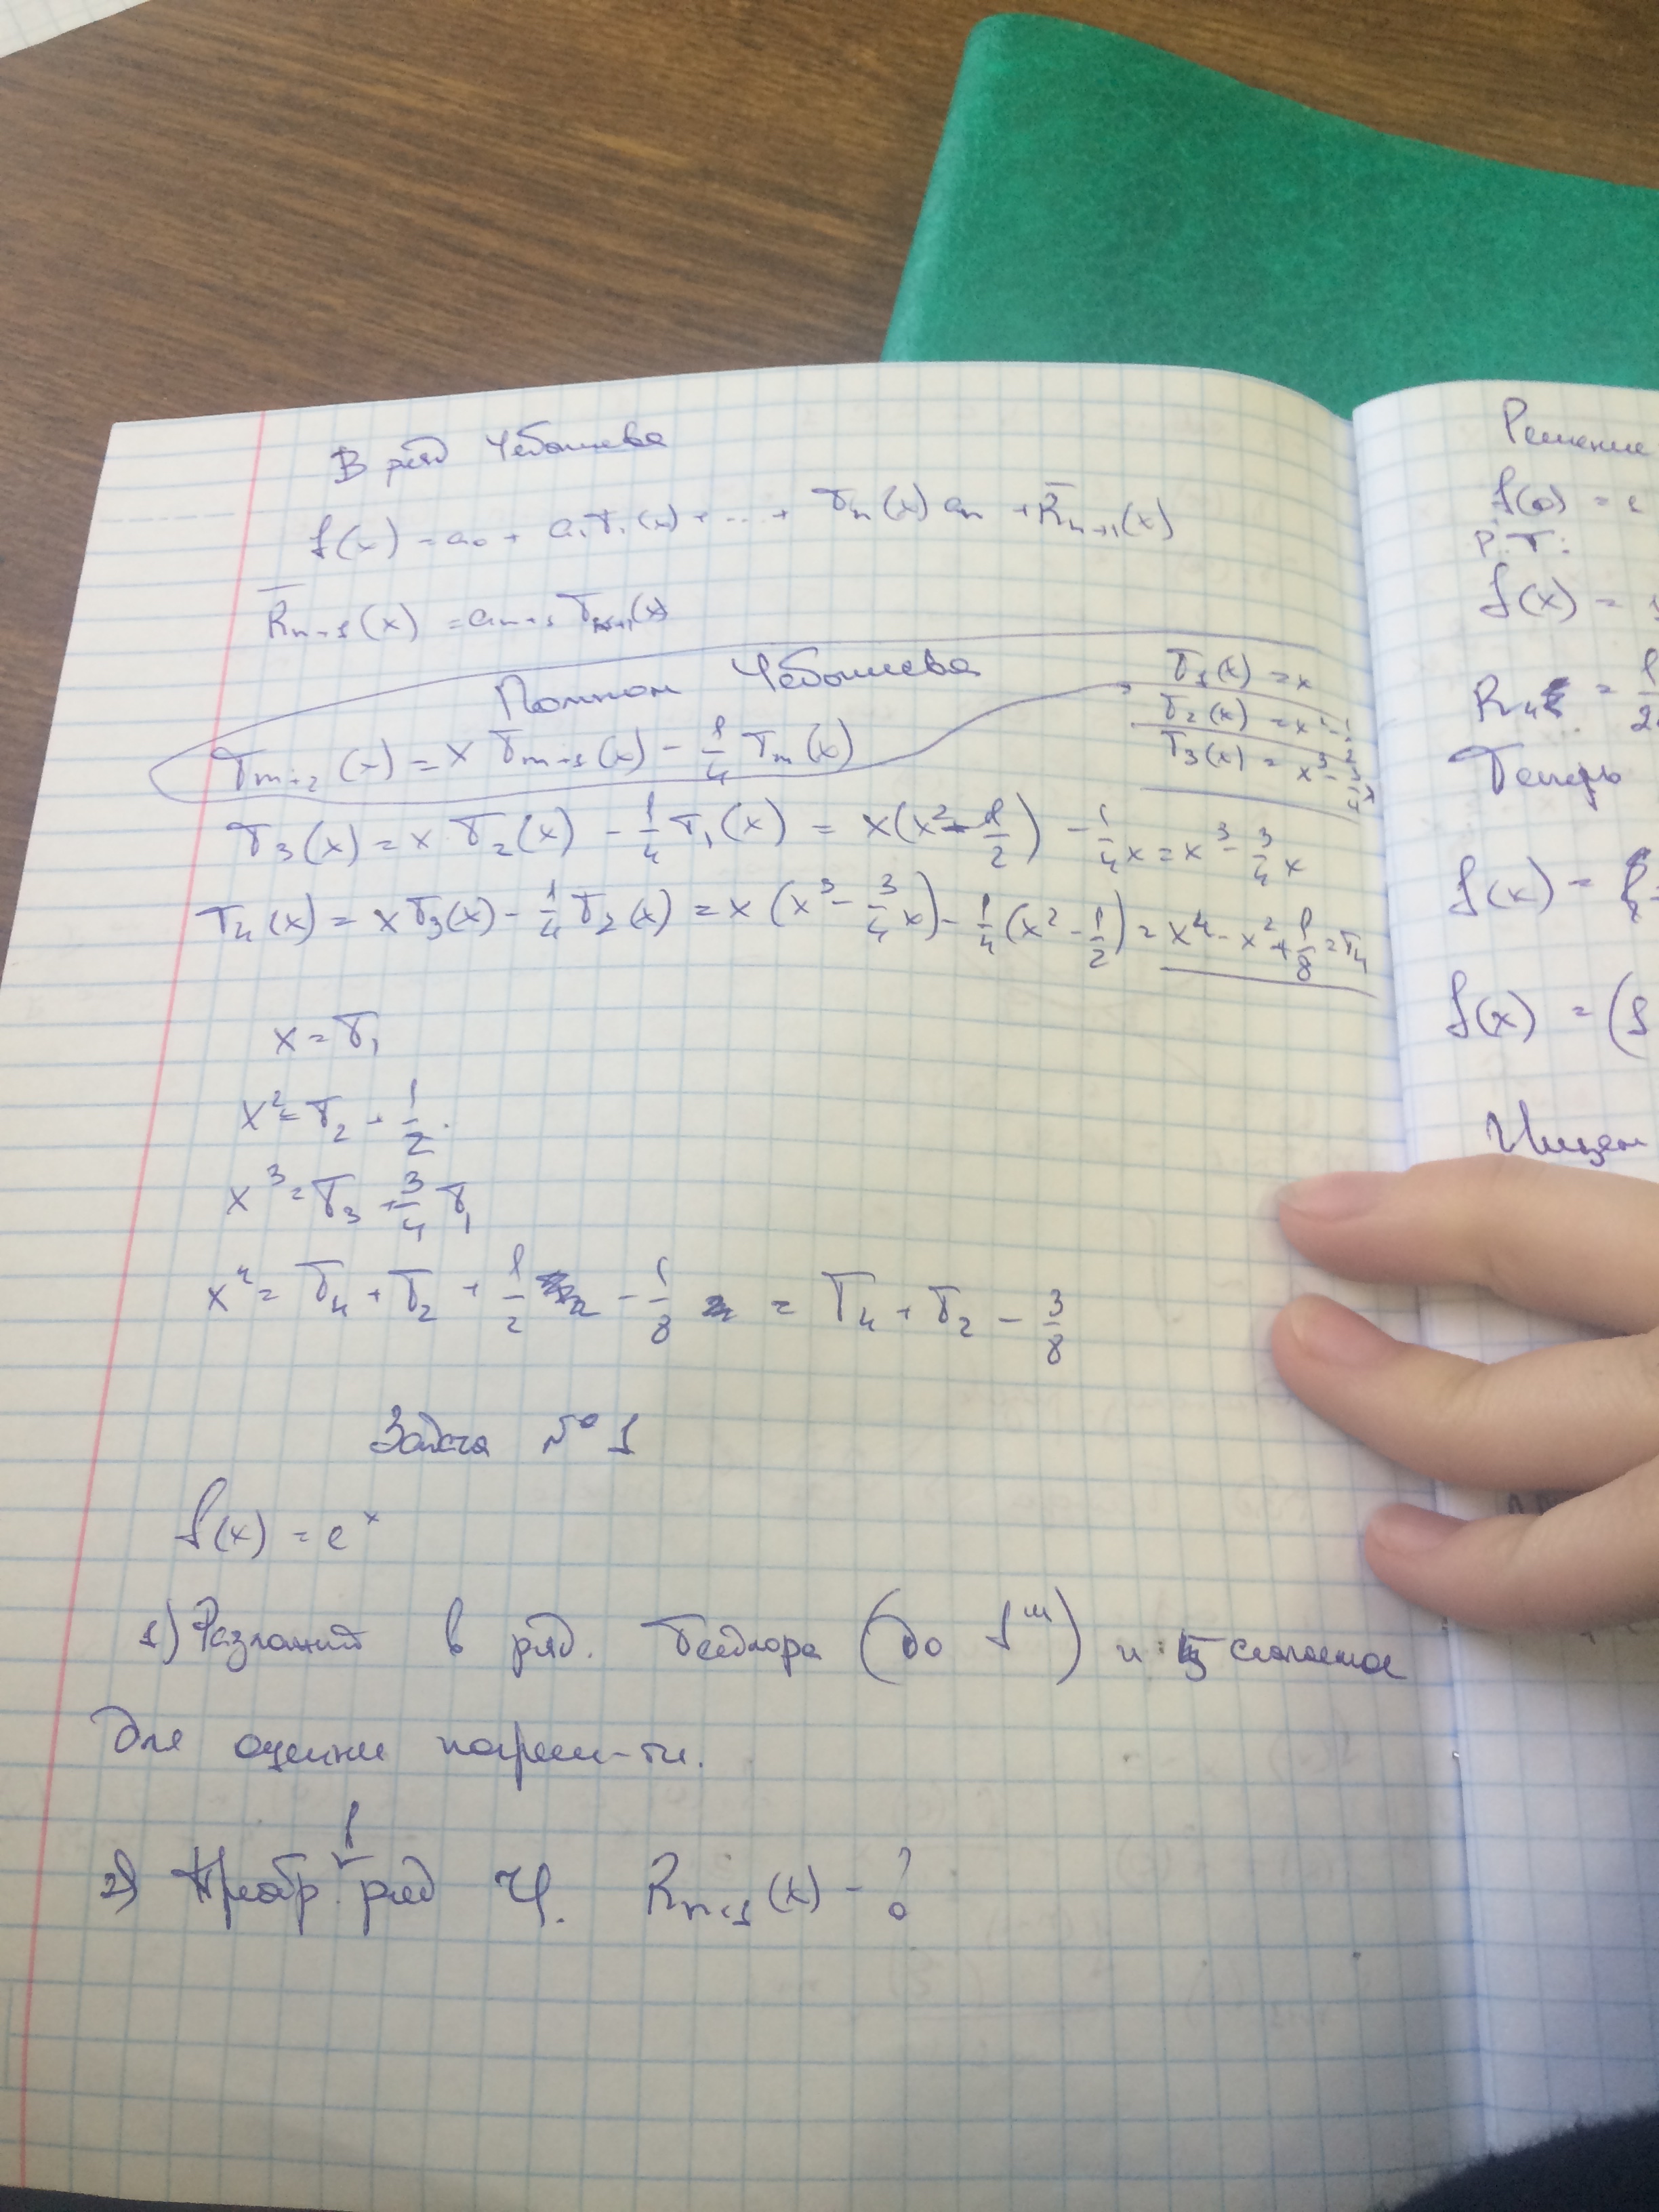 В ряд Чебышева
f(x) = a₀ + a₁T₁(x) + ... + Tₙ(x) aₙ + R̅ₙ₊₁(x)
R̅ₙ₊₁(x) = aₙ₊₁ Tₙ₊₁(x)
Полином Чебышева
Tₘ₊₂(x) = x Tₘ₊₁(x) - 1/4 Tₘ(x)
T₁(x) = x
T₂(x) = x² - 1/2
T₃(x) = x³ - 3/4 x
T₃(x) = x T₂(x) - 1/4 T₁(x) = x(x² - 1/2) - 1/4 x = x³ - 3/4 x
T₄(x) = x T₃(x) - 1/4 T₂(x) = x (x³ - 3/4 x) - 1/4 (x² - 1/2) = x⁴ - x² + 1/8 = T₄
x = T₁
x² = T₂ + 1/2
x³ = T₃ + 3/4 T₁
x⁴ = T₄ + T₂ + 1/2 - 1/8 = T₄ + T₂ - 3/8
Задача № 1
f(x) = eˣ
1) Разложить в ряд Тейлора (до f''') и слагаемое
для оценки погреш-ти.
2) Преобр. 1 ряд Ч. Rₙ₊₁(x) - ?
Решение
f(x) =
Р.Т:
f(x) =
R₄ =
Теперь
f(x) =
f(x) = (1
Ищем